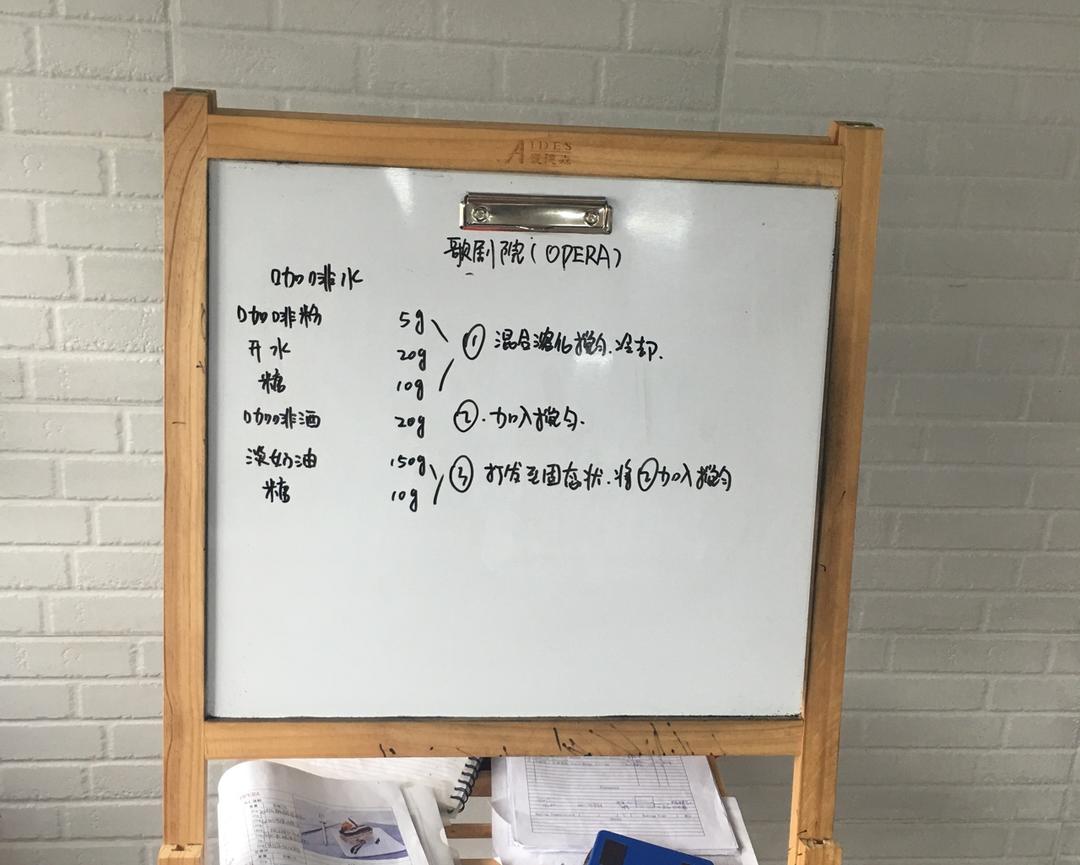 AIDES
爱德嘉
歌剧院(OPERA)
咖啡水
咖啡粉 5g
开水 20g ① 混合溶化搅匀.冷却.
糖 10g
咖啡酒 20g ②.加入搅匀.
淡奶油 150g ③ 打发至固态状.将②加入搅匀
糖 10g
OPERA